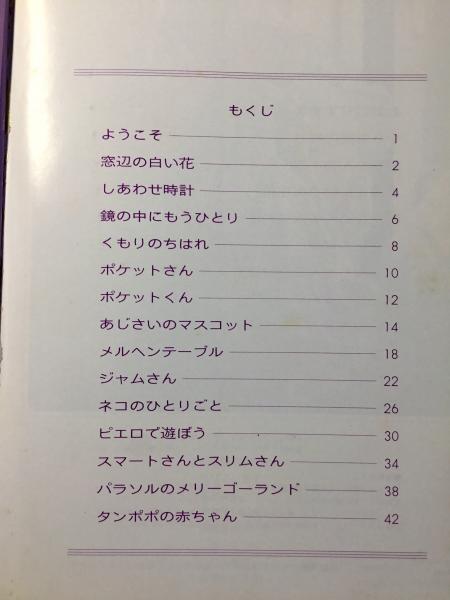 もくじ
ようこそ 1
窓辺の白い花 2
しあわせ時計 4
鏡の中にもうひとり 6
くもりのちはれ 8
ポケットさん 10
ポケットくん 12
あじさいのマスコット 14
メルヘンテーブル 18
ジャムさん 22
ネコのひとりごと 26
ピエロで遊ぼう 30
スマートさんとスリムさん 34
パラソルのメリーゴーランド 38
タンポポの赤ちゃん 42